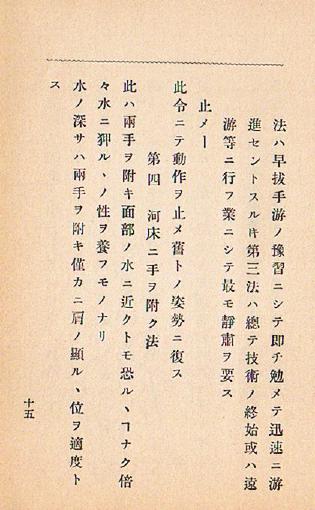 法ハ早拔手游ノ豫習ニシテ卽チ勉メテ迅速ニ游
進セントスル𪜈第三法ハ總テ技術ノ終始或ハ遠
游等ニ行フ業ニシテ最モ靜肅ヲ要ス
止メー
此令ニテ動作ヲ止メ舊トノ姿勢ニ復ス
第四　河床ニ手ヲ附ク法
此ハ兩手ヲ附キ面部ノ水ニ近クトモ恐ルヽヿナク倍
々水ニ狎ルヽノ性ヲ養フモノナリ
水ノ深サハ兩手ヲ附キ僅カニ肩ノ顯ルヽ位ヲ適度ト
ス
十五